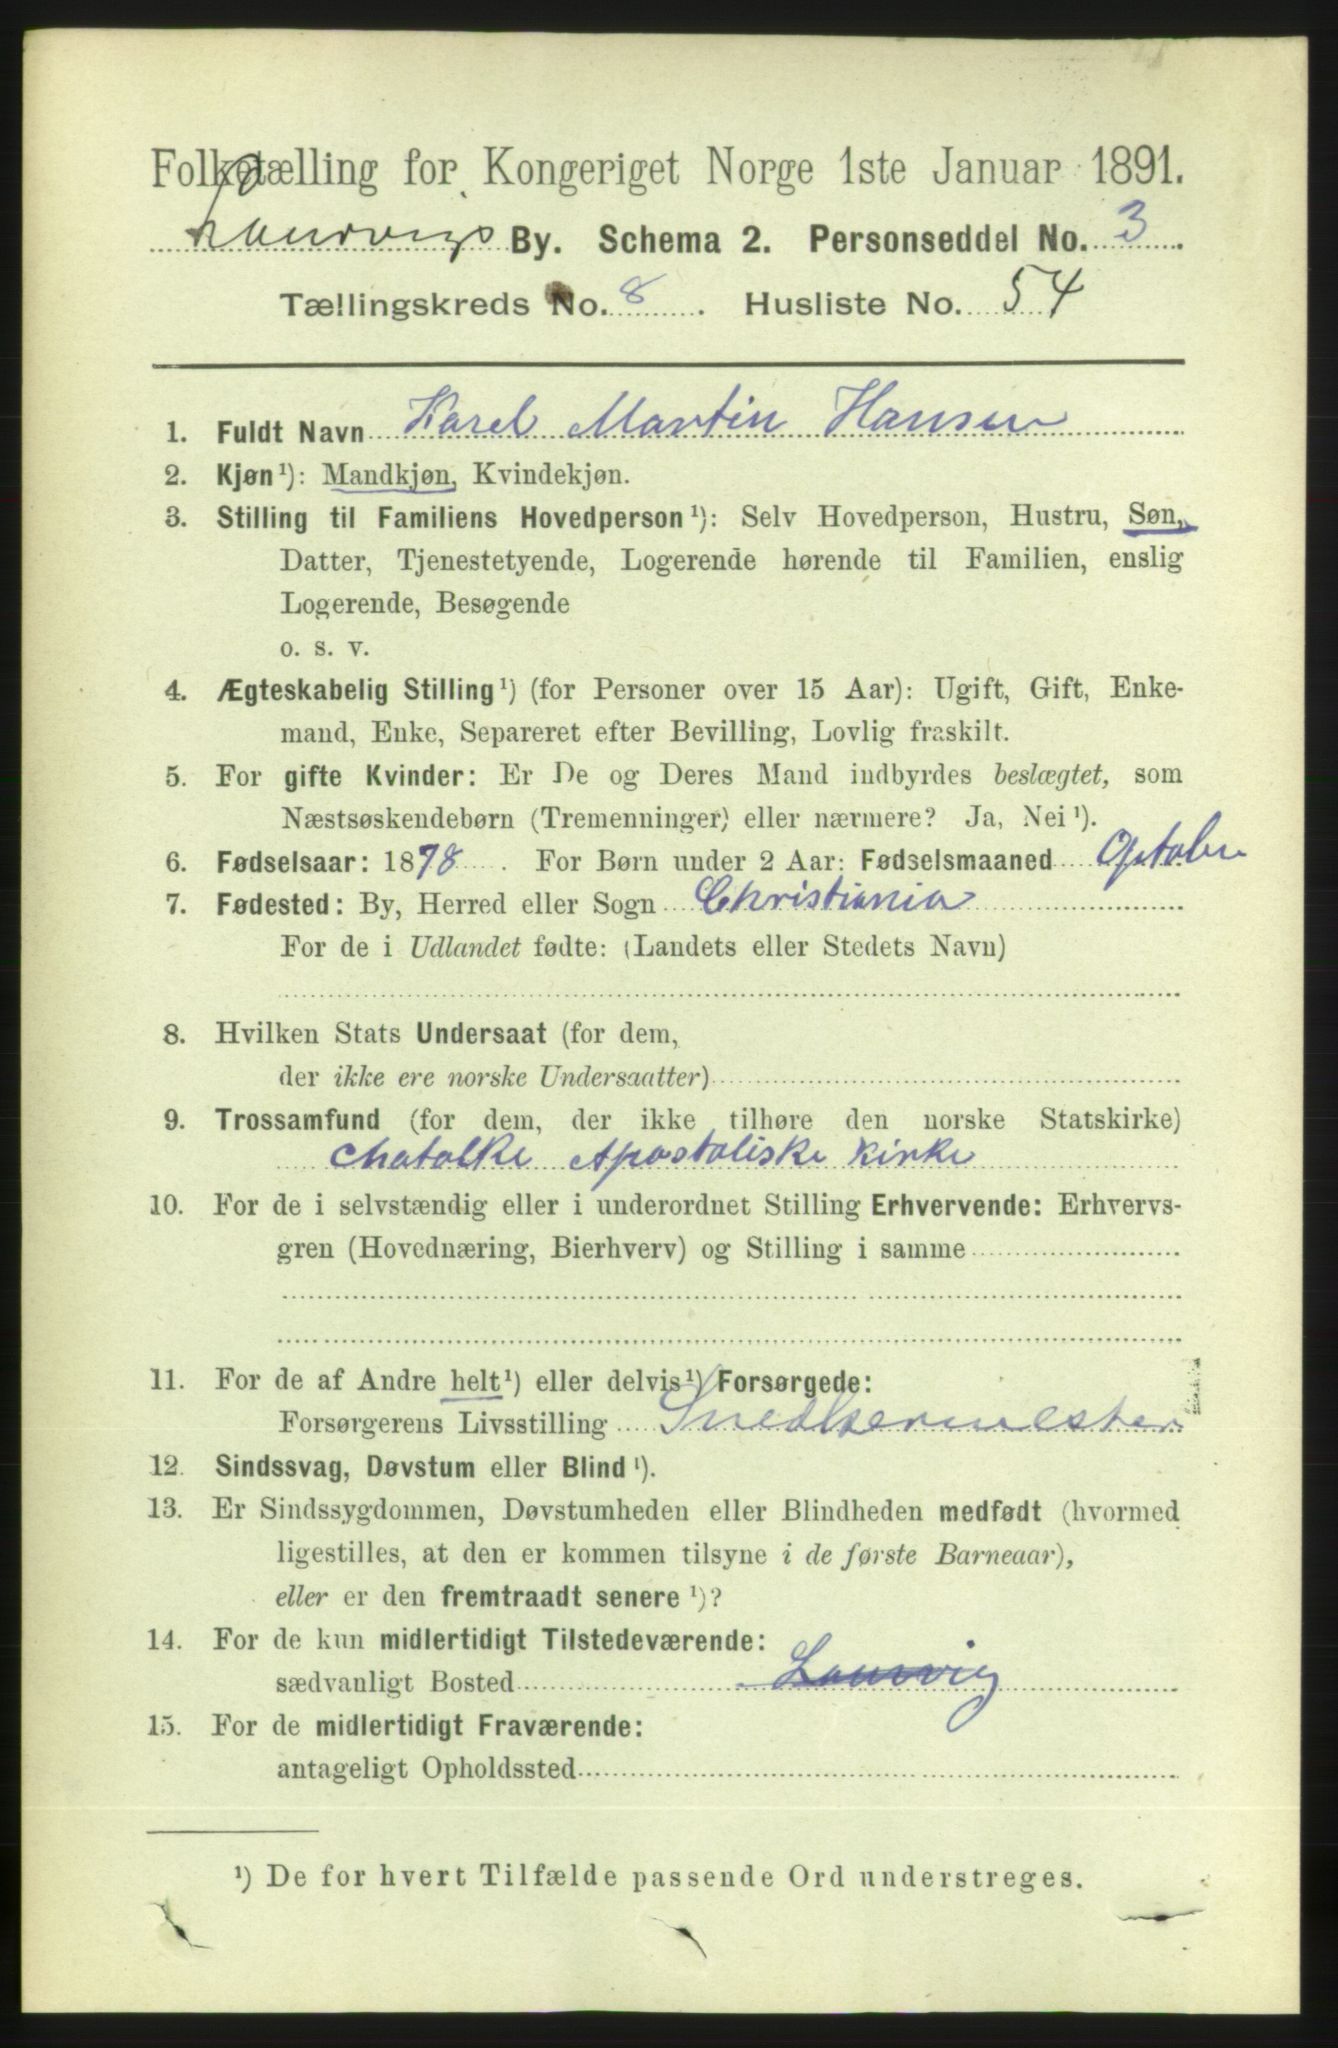 Folketælling for Kongeriget Norge 1ste Januar 1891.
Laurvigs By. Schema 2. Personseddel No. 3.
Tællingskreds No. 8. Husliste No. 54
1. Fuldt Navn Karel Martin Hansen
2. Kjøn¹): Mandkjøn, Kvindekjøn.
3. Stilling til Familiens Hovedperson¹): Selv Hovedperson, Hustru, Søn,
Datter, Tjenestetyende, Logerende hørende til Familien, enslig
Logerende, Besøgende
o. s. v.
4. Ægteskabelig Stilling¹) (for Personer over 15 Aar): Ugift, Gift, Enke-
mand, Enke, Separeret efter Bevilling, Lovlig fraskilt.
5. For gifte Kvinder: Er De og Deres Mand indbyrdes beslægtet, som
Næstsøskendebørn (Tremenninger) eller nærmere? Ja, Nei¹).
6. Fødselsaar: 1878. For Børn under 2 Aar: Fødselsmaaned Optober
7. Fødested: By, Herred eller Sogn Christiania
For de i Udlandet fødte: (Landets eller Stedets Navn)
8. Hvilken Stats Undersaat (for dem,
der ikke ere norske Undersaatter)
9. Trossamfund (for dem, der ikke tilhøre den norske Statskirke)
chatolke Apostoliske kirke
10. For de i selvstændig eller i underordnet Stilling Erhvervende: Erhvervs-
gren (Hovednæring, Bierhverv) og Stilling i samme
11. For de af Andre helt¹) eller delvis¹) Forsørgede:
Forsørgerens Livsstilling Snedkermester
12. Sindssvag, Døvstum eller Blind¹).
13. Er Sindssygdommen, Døvstumheden eller Blindheden medfødt (hvormed
ligestilles, at den er kommen tilsyne i de første Barneaar),
eller er den fremtraadt senere¹)?
14. For de kun midlertidigt Tilstedeværende:
sædvanligt Bosted Laurvig
15. For de midlertidigt Fraværende:
antageligt Opholdssted
¹) De for hvert Tilfælde passende Ord understreges.